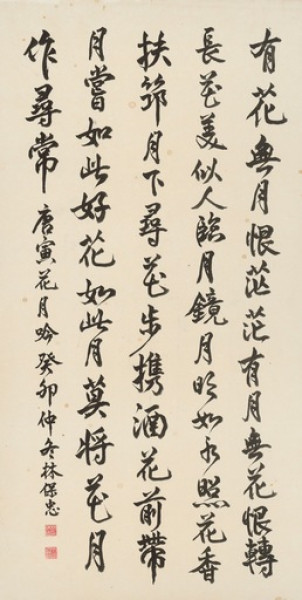 有花無月恨茫茫有月無花恨轉
長花美似人臨月鏡月明如水照花香
扶筇月下尋花步携酒花前帶
月嘗如此好花如此月莫將花月
作尋常 唐寅花月吟癸卯仲冬林保忠